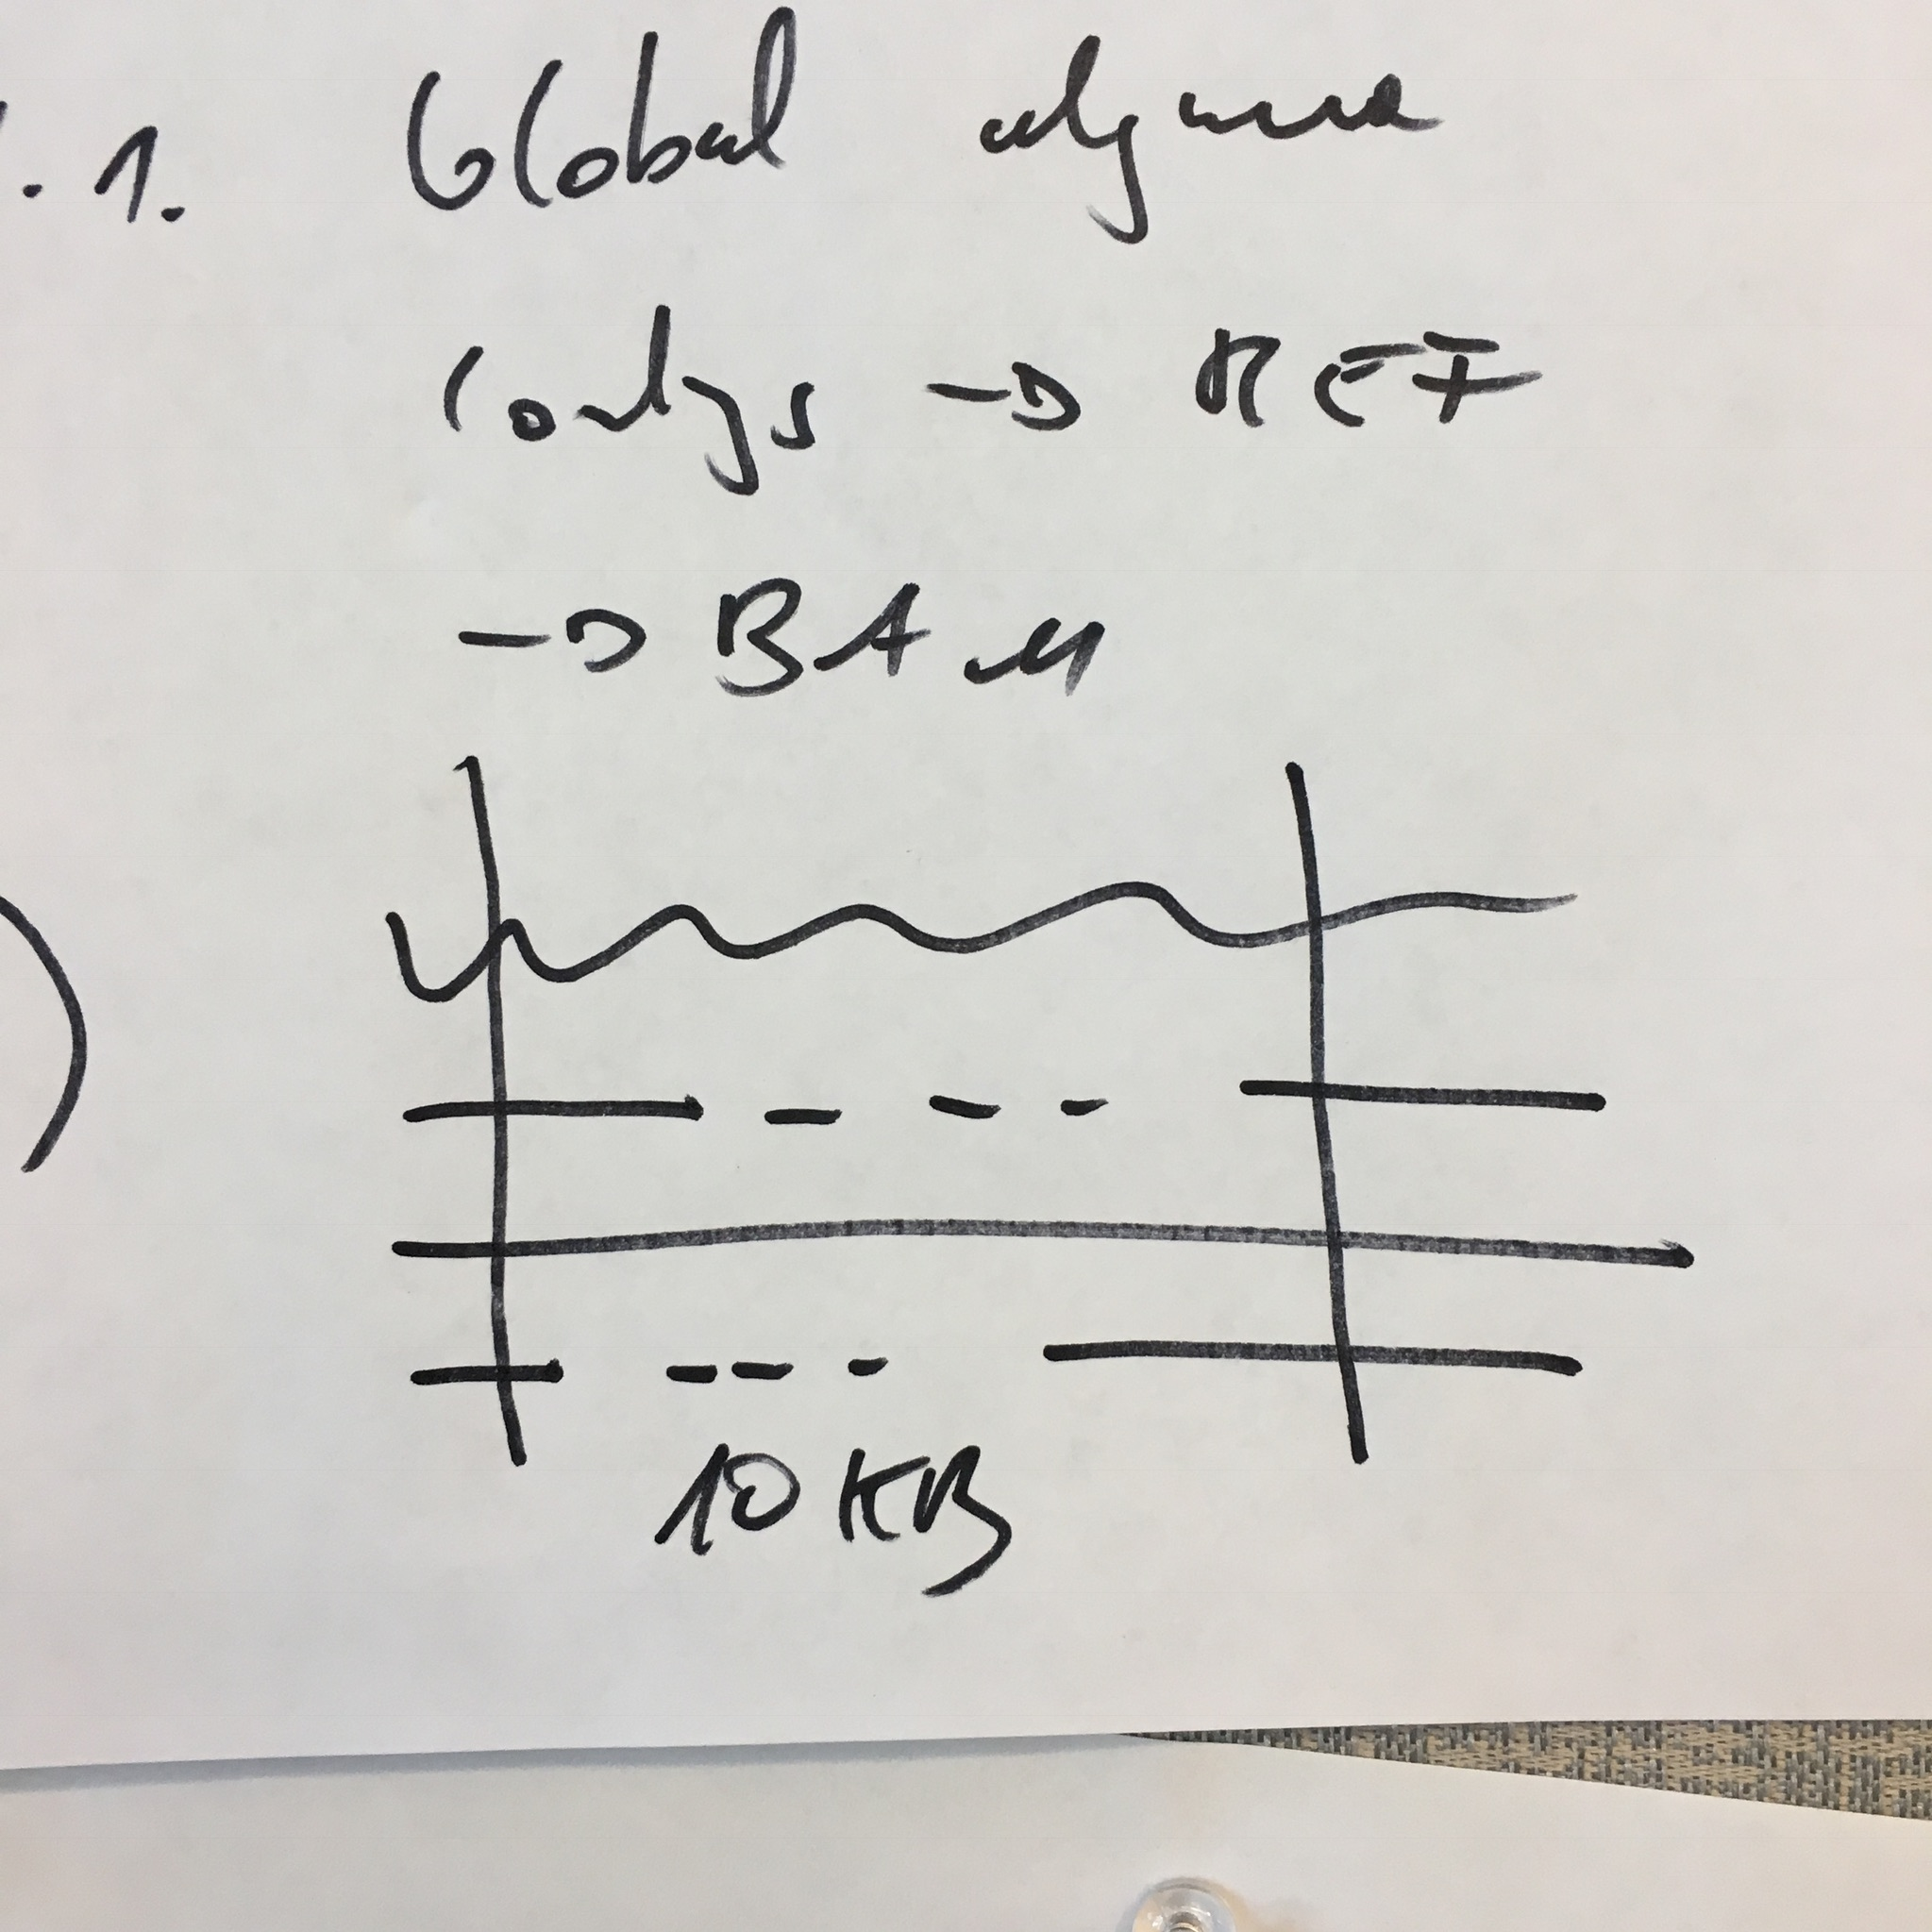 . 1. Global alignment
Contigs → REF
→ BAM
10 KB